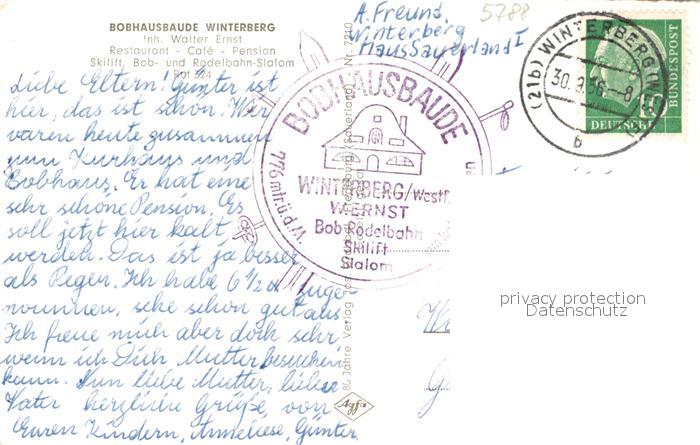 BOBHAUSBAUDE WINTERBERG
Inh. Walter Ernst
Restaurant - Café - Pension
Skilift, Bob- und Rodelbahn-Slalom
Ruf 524
A. Freund,
Winterberg
Haus Sauerland I
5788
Liebe Eltern! Günter ist
hier, das ist schön. Wir
waren heute zusammen
zum Kurhaus und
Bobhaus. Er hat eine
sehr schöne Pension. Es
soll jetzt hier kalt
werden. Das ist ja besser
als Regen. Ich habe 6 1/2 zuge-
nommen, sehe schon gut aus.
Ich freue mich aber doch sehr
wenn ich Dich Mutter besuchen
kann. Nun liebe Mutter, lieber
Vater herzliche Grüße, von
Euren Kindern, Anneliese, Günter.
BOBHAUSBAUDE
776 mtr. ü. d. M.
WINTERBERG/Westf.
W. ERNST
Bob-Rodelbahn
Skilift
Slalom
80 Jahre Verlag
Agfa
(21b) WINTERBERG
30.9.56.-8
b
DEUTSCHE BUNDESPOST
privacy protection
Datenschutz